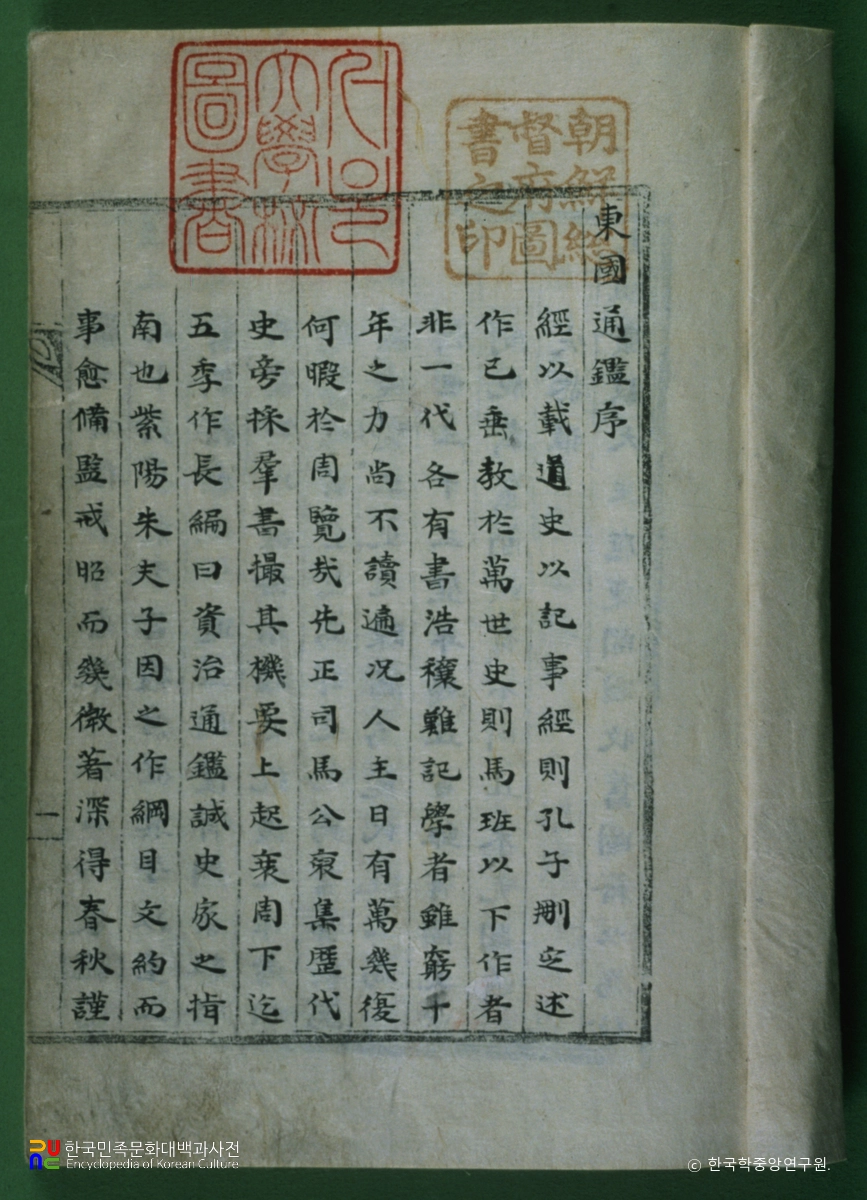 서울
大學校
圖書
朝鮮總
督府圖
書之印
東國通鑑序
經以載道史以記事經則孔子刪定述
作已垂教於萬世史則馬班以下作者
非一代各有書浩穰難記學者雖窮十
年之力尚不讀遍况人主日有萬幾復
何暇於周覽哉先正司馬公裒集歷代
史旁採羣書撮其機要上起衰周下迄
五季作長編曰資治通鑑誠史家之指
南也紫陽朱夫子因之作綱目文約而
事愈備監戒昭而幾微著深得春秋謹
一
한국민족문화대백과사전
Encyclopedia of Korean Culture
ⓒ 한국학중앙연구원.